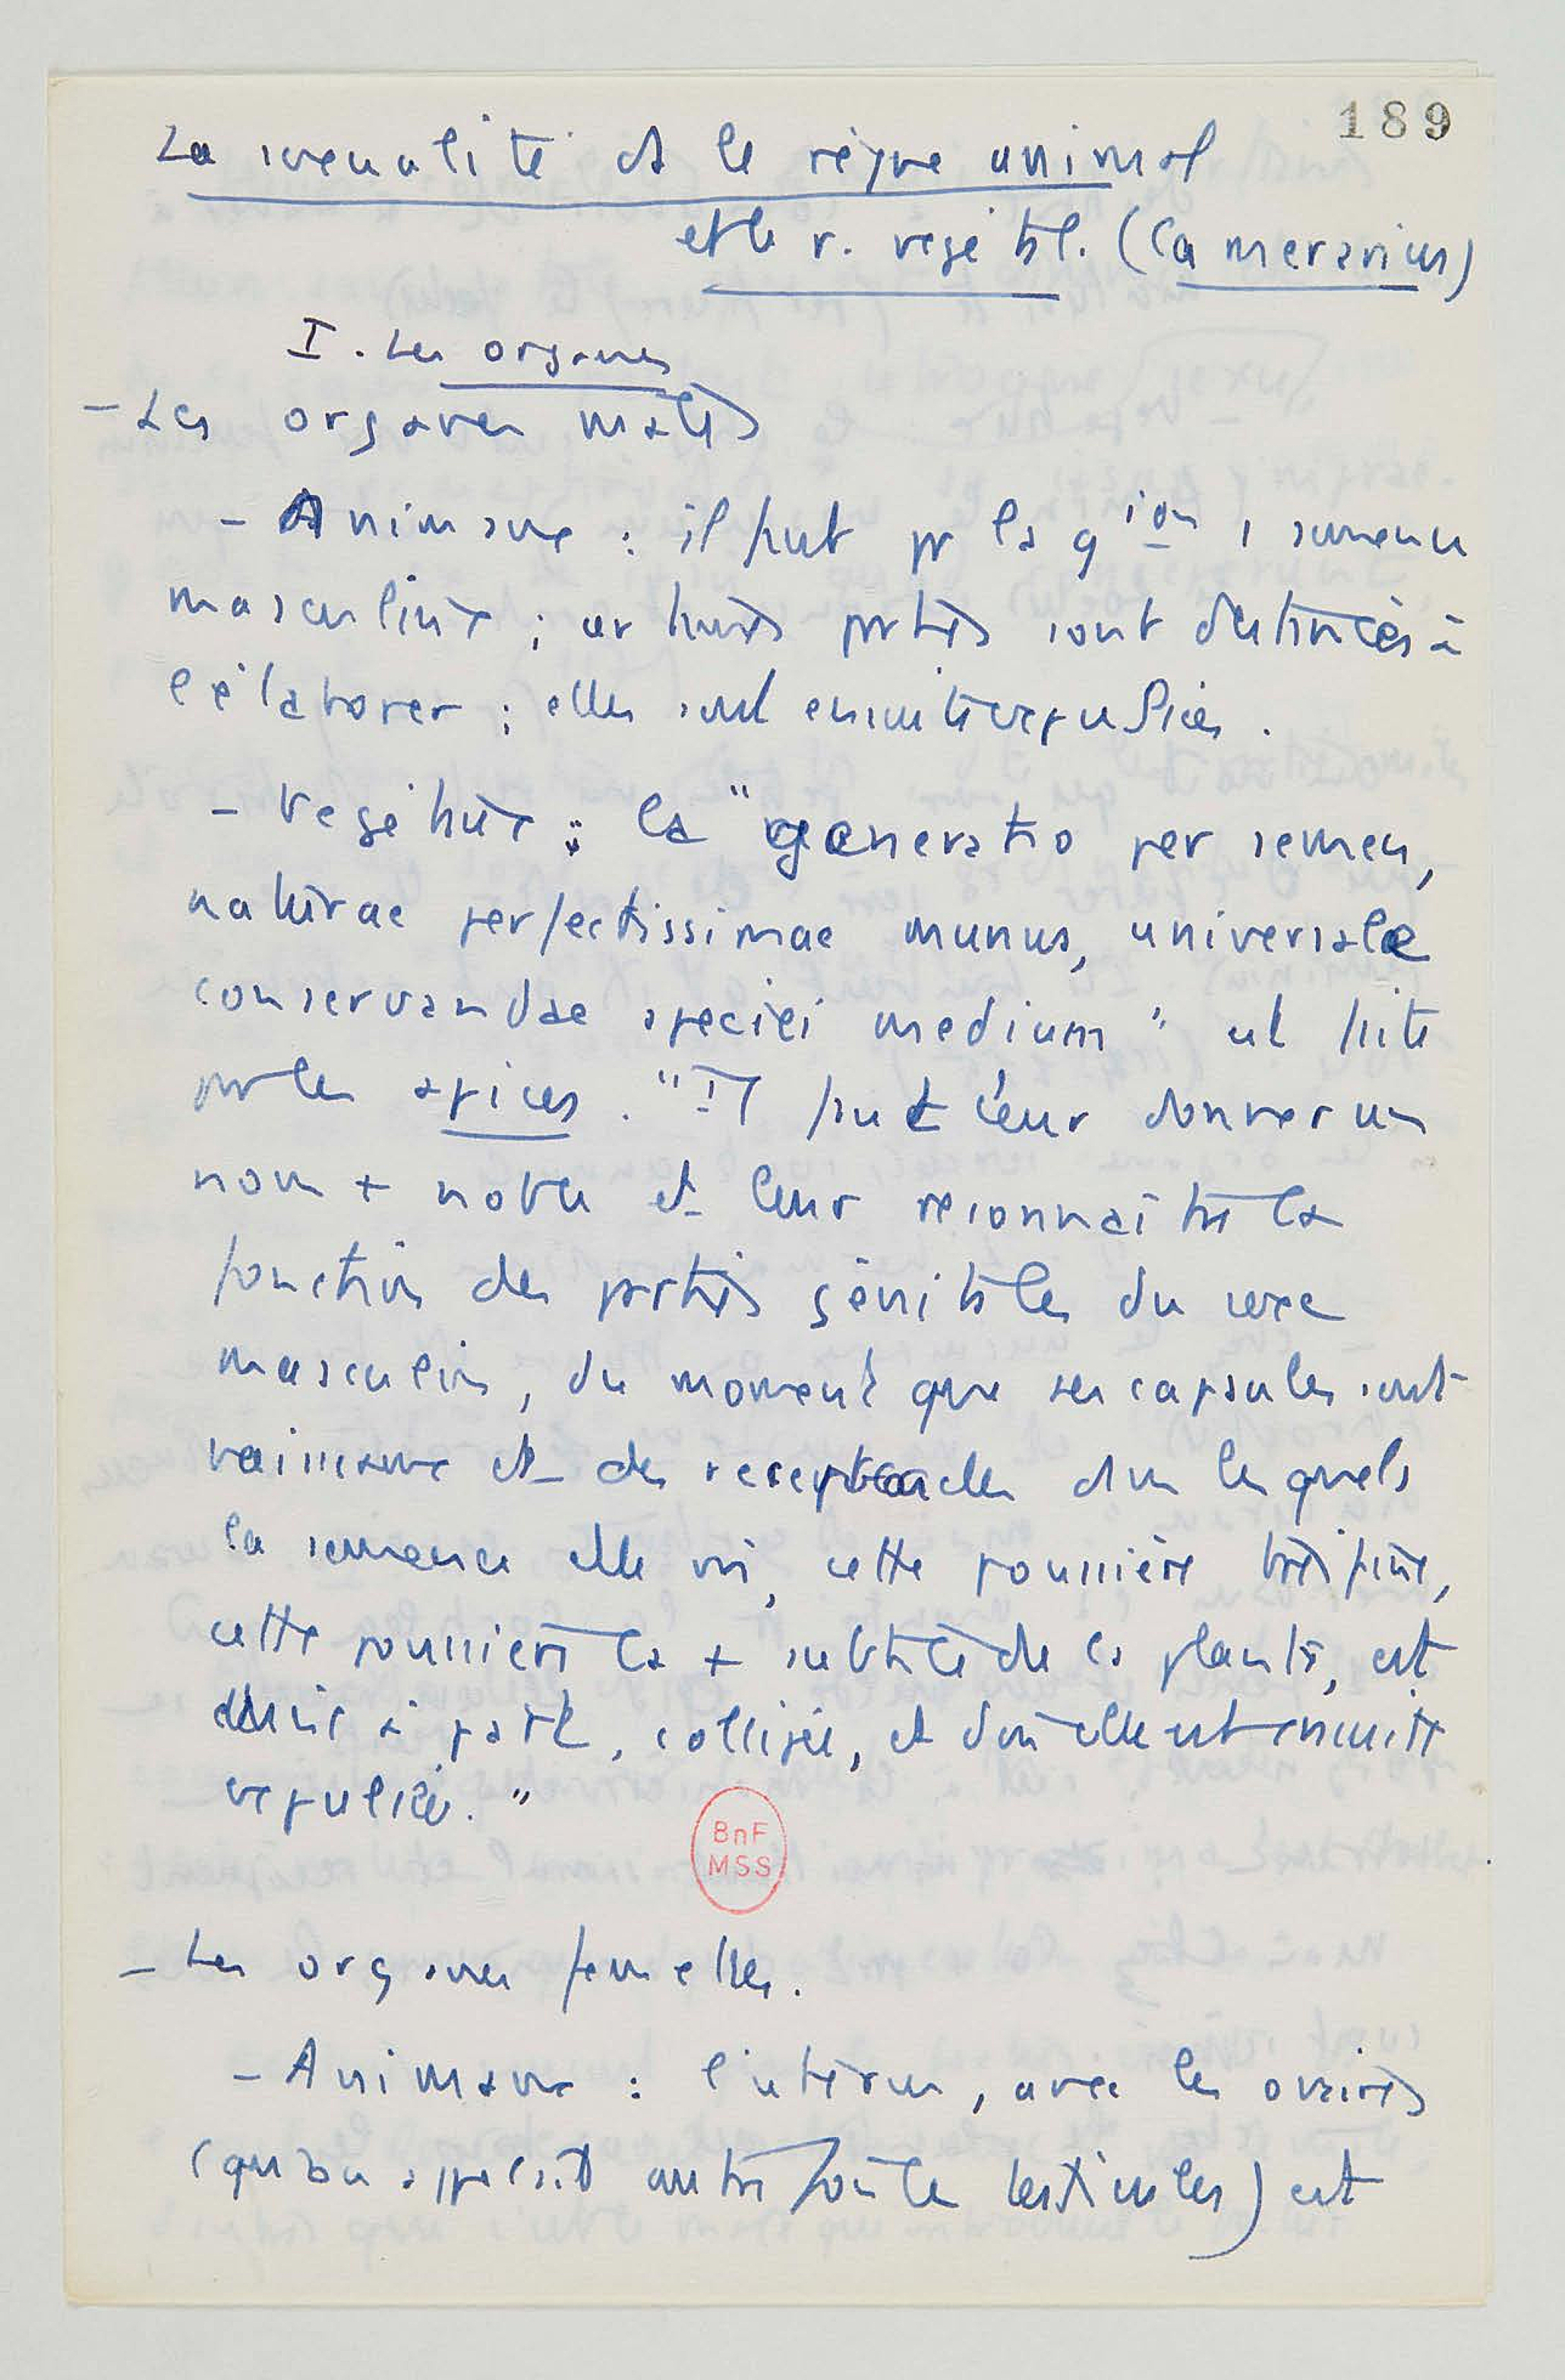 189
La sexualité ds le règne animal
et le r. végétal. (Camerarius)
I. Les organes
- Les organes mâles
- Animaux : il faut pr la gion 1 semence
masculine ; certaines parties sont destinées à
l'élaborer ; elles sont ensuite vers
- Végétaux : la "generatio per semen,
naturae perfectissimae munus, universale
conservandae speciei medium" est faite
par les apices. "Il faut leur donner un
nom + noble et leur reconnaître la
fonction des parties génitales du sexe
masculin, du moment que ses capsules sont
vaisseaux et des receptacles dans lesquels
la semence elle même, cette poussière très fine,
cette poussière la + subtile de la plante, est
à part, colligée, et d'où elle est ensuite
"
BnF
MSS
- Les organes femelles.
- Animaux : l'uterus, avec les ovaires
(qu'on appelait autrefois les testicules) est